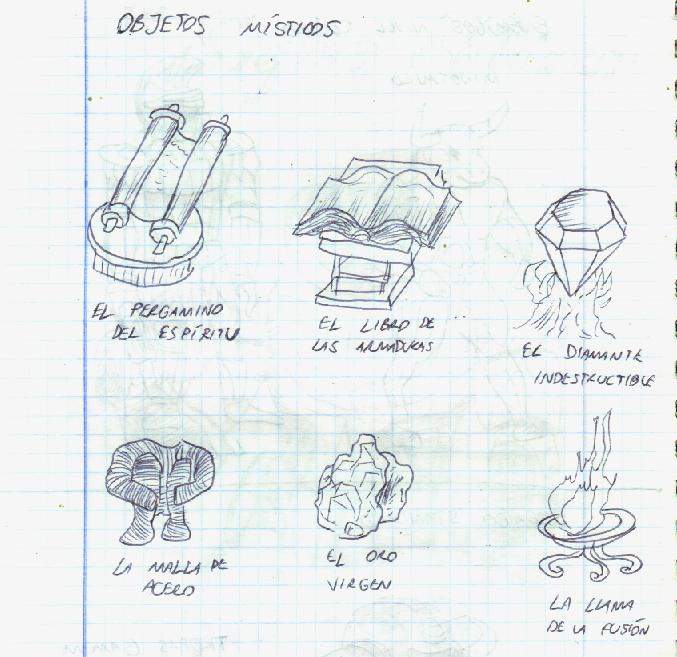 OBJETOS MÍSTICOS
EL PERGAMINO
DEL ESPÍRITU
EL LIBRO DE
LAS ARMADURAS
EL DIAMANTE
INDESTRUCTIBLE
LA MALLA DE
ACERO
EL ORO
VIRGEN
LA LLAMA
DE LA FUSIÓN